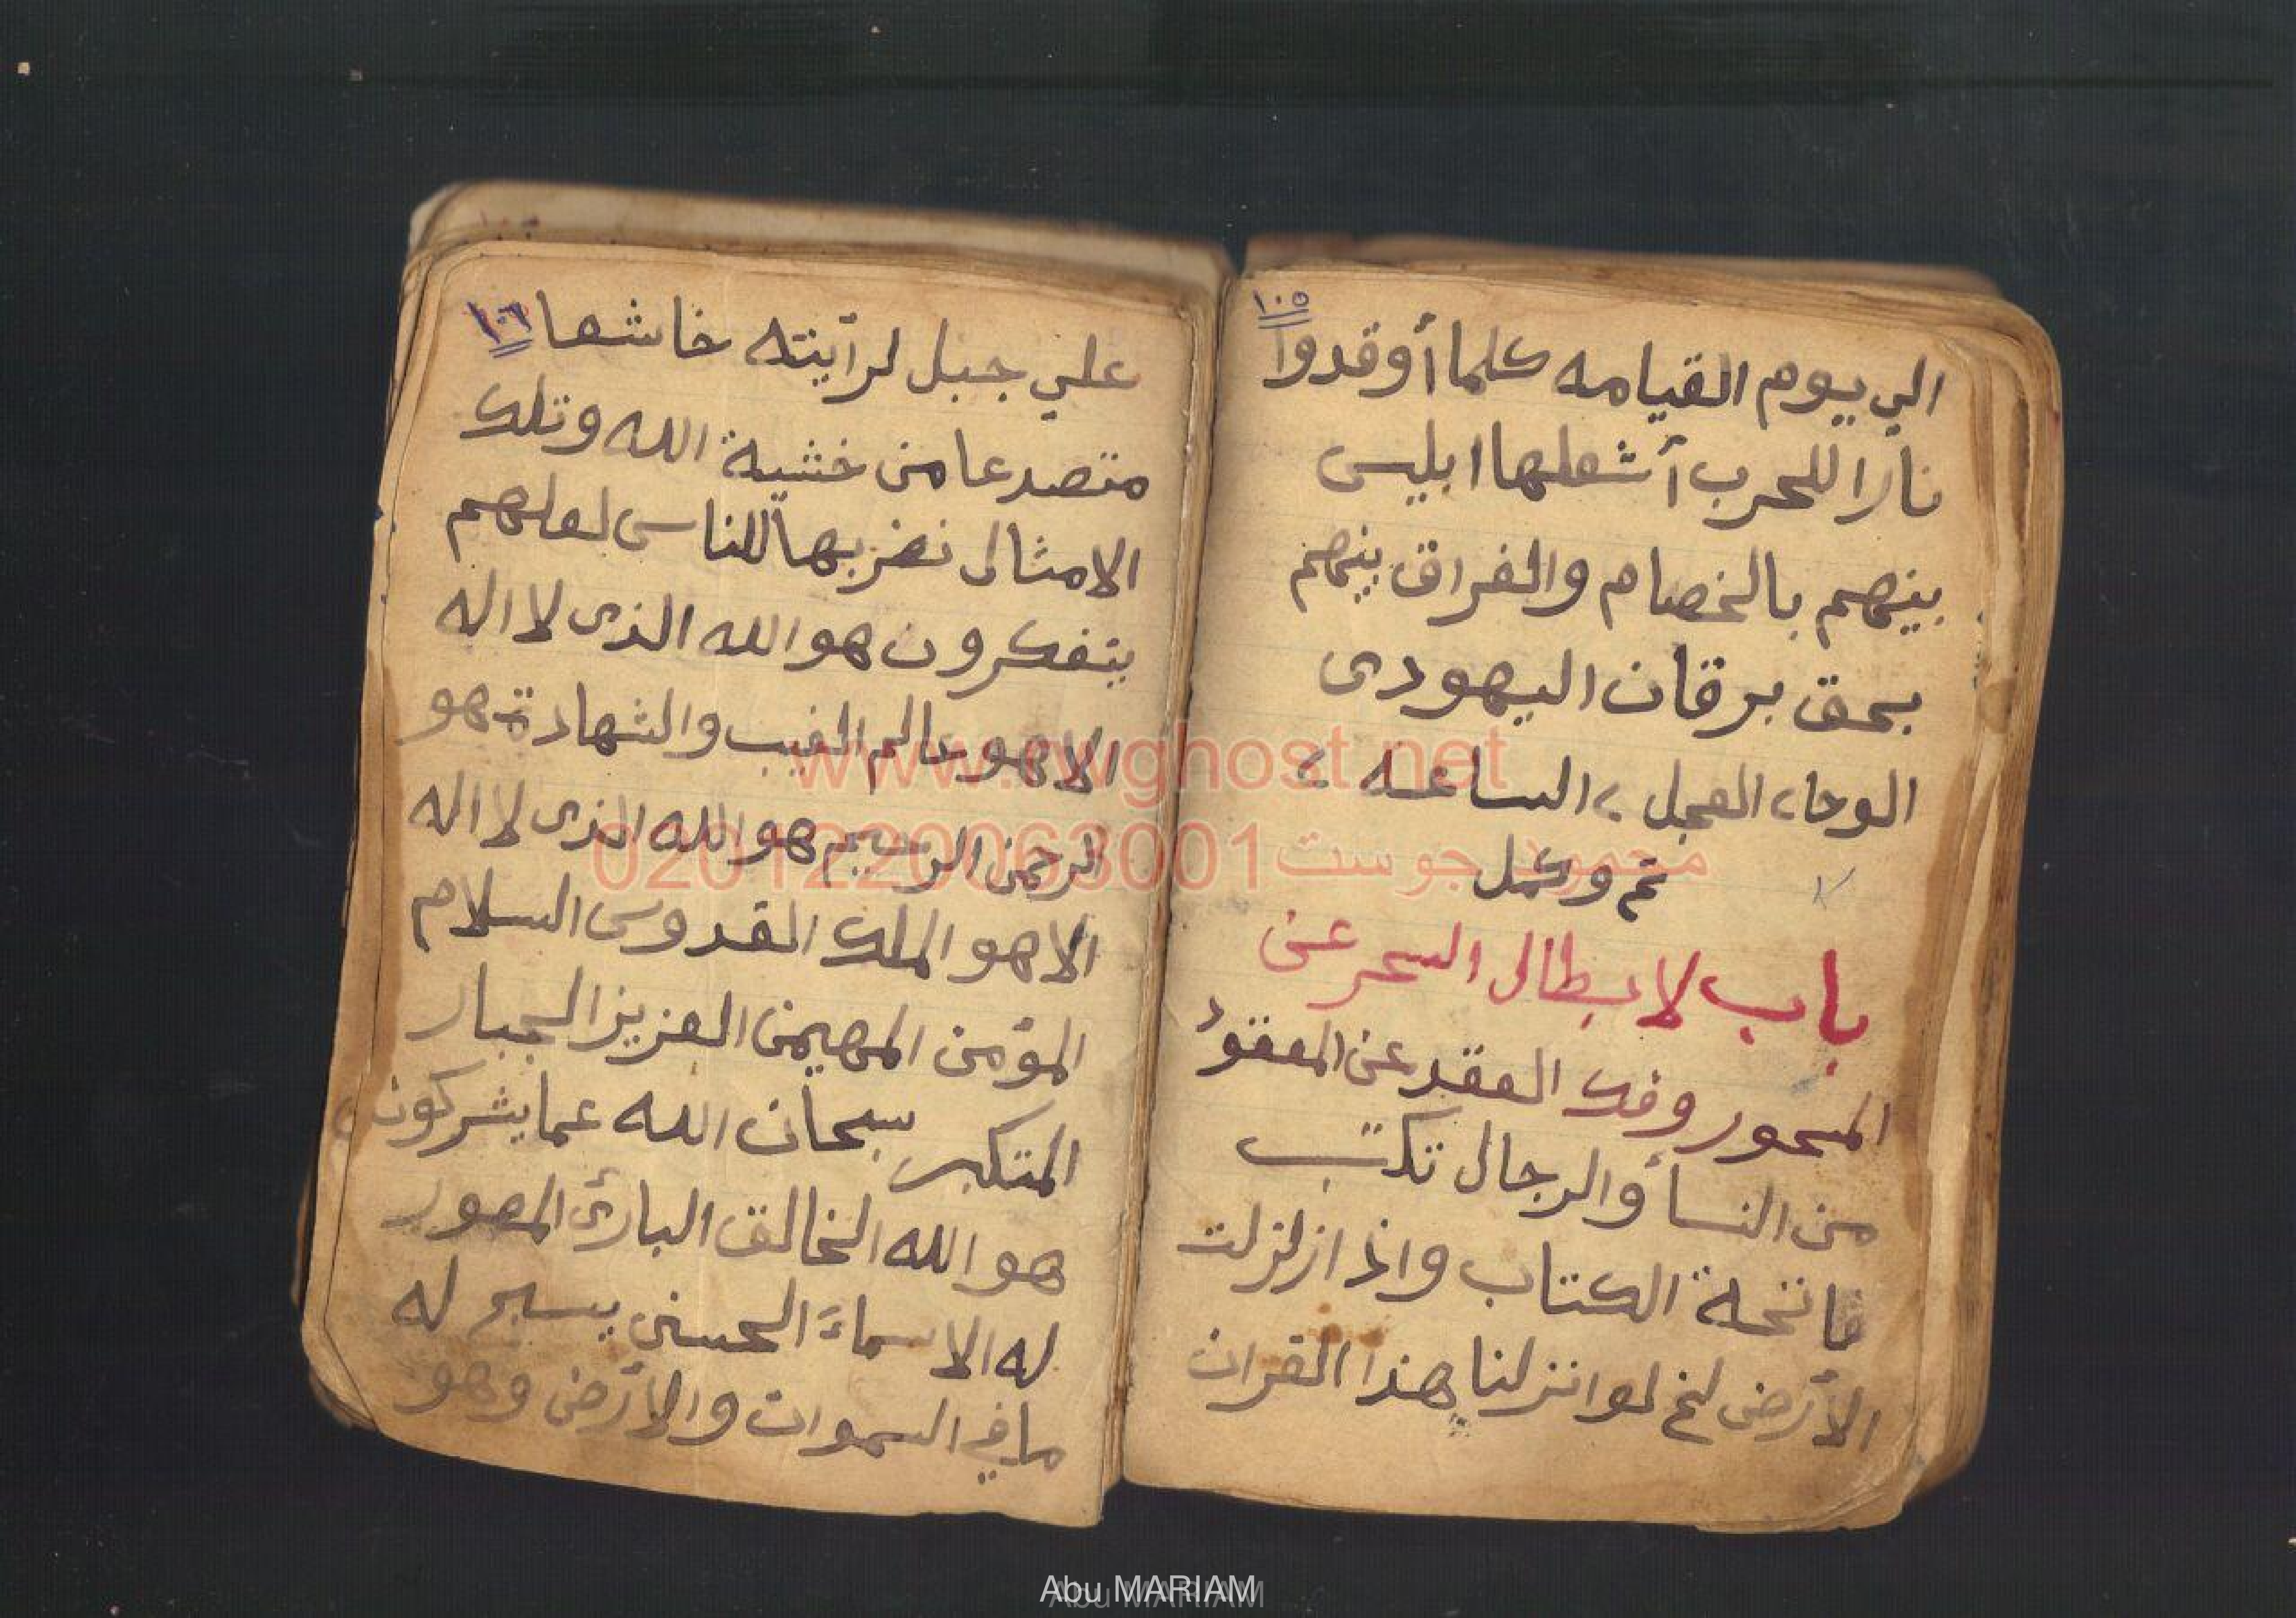 ١٠٥
الي يوم القيامه كلما أوقدوا
نارا للحرب أشعلها ابليس
بينهم بالخصام والفراق بينهم
بحق برقان اليهودى
الوحا، العجل، الساعه ،
تم وكمل
باب لابطال السحر عن
المسحور وفك العقد عن المعقود
من النسأ والرجال تكتب
فاتحة الكتاب واذا زلزلت
الأرض لخ لو انزلنا هذا القران
١٠٦
علي جبل لرأيته خاشعا
متصدعا من خشية الله وتلك
الامثال نضربها للناس لعلهم
يتفكرون هو الله الذى لا اله
الا هو عالم الغيب والشهادة هو
الرحمن الرحيم هو الله الذى لا اله
الا هو الملك القدوس السلام
المؤمن المهيمن العزيز الجبار
المتكبر سبحان الله عما يشركون
هو الله الخالق البارئ المصور
له الاسماء الحسنى يسبح له
ما في السموات والأرض وهو
www.rwghost.net
محمود جوست 0201220063001
Abu MARIAM